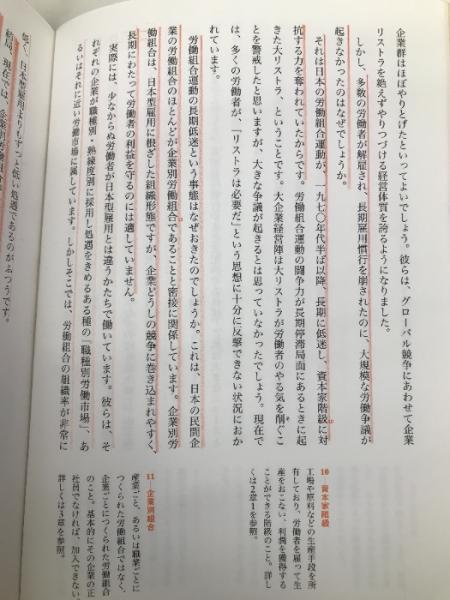 企業群はほぼやりとげたといってよいでしょう。彼らは、グローバル競争にあわせて企業
リストラを絶えずやりつづける経営体質を誇るようになりました。
しかし、多数の労働者が解雇され、長期雇用慣行を崩されたのに、大規模な労働争議が
起きなかったのはなぜでしょうか。
それは日本の労働組合運動が、一九七〇年代半ば以降、長期に低迷し、資本家階級に対
抗する力を奪われていたからです。労働組合運動の闘争力が長期停滞局面にあるときに起
きた大リストラ、ということです。大企業経営陣は大リストラが労働者のやる気を削ぐこ
とを警戒したと思いますが、大きな争議が起きるとは思っていなかったでしょう。現在で
は、多くの労働者が、「リストラは必要だ」という思想に十分に反撃できない状況におか
れています。
労働組合運動の長期低迷という事態はなぜおきたのでしょうか。これは、日本の民間企
業の労働組合のほとんどが企業別労働組合であることと密接に関係しています。企業別労
働組合は、日本型雇用に根ざした組織形態ですが、企業どうしの競争に巻き込まれやすく、
長期にわたって労働者の利益を守るのには適していません。
実際には、少なからぬ労働者が日本型雇用とは違うかたちで働いています。彼らは、そ
れぞれの企業が職種別・熟練度別に採用し処遇をきめるある種の「職種別労働市場」、あ
るいはそれに近い労働市場に属しています。しかしそこでは、労働組合の組織率が非常に
低く、日本型雇用よりもずっと低い処遇であるのがふつうです。
結局、現在では、企業別労働組
10 資本家階級
工場や原料などの生産手段を所
有しており、労働者を雇って生
産をおこない、利潤を獲得する
ことができる階級のこと。詳し
くは2章1を参照。
11 企業別組合
産業ごと、あるいは職業ごとに
つくられた労働組合ではなく、
企業ごとにつくられた労働組合
のこと。基本的にその企業の正
社員でなければ、加入できない。
詳しくは3章を参照。